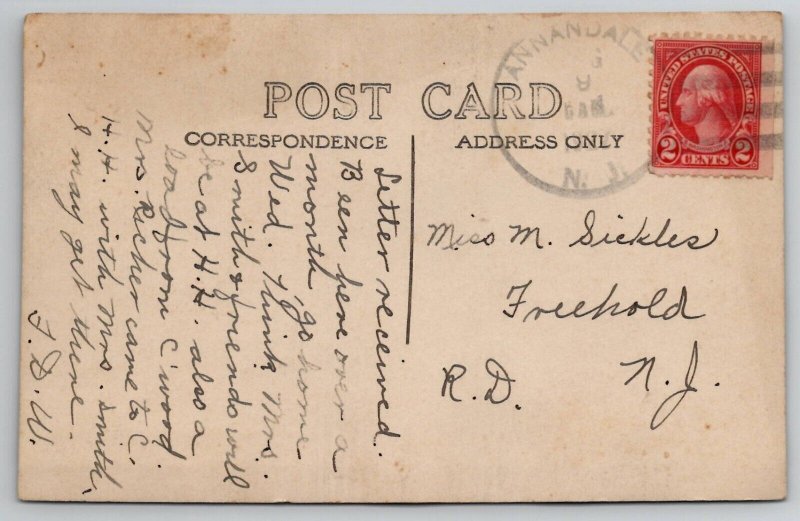 POST CARD
CORRESPONDENCE
ADDRESS ONLY
ANNANDALE
9
AM
N. J.
UNITED STATES POSTAGE
2 CENTS 2
Miss M. Sickles
Freehold
R.D. N.J.
Letter received.
Been here over a
month, go home
Wed. Think Mrs.
Smith & friends will
be at H.H. also a
load from C'wood.
Mrs. Richer came to C.
H.H. with Mrs. Smith.
I may get there.
F.D.W.